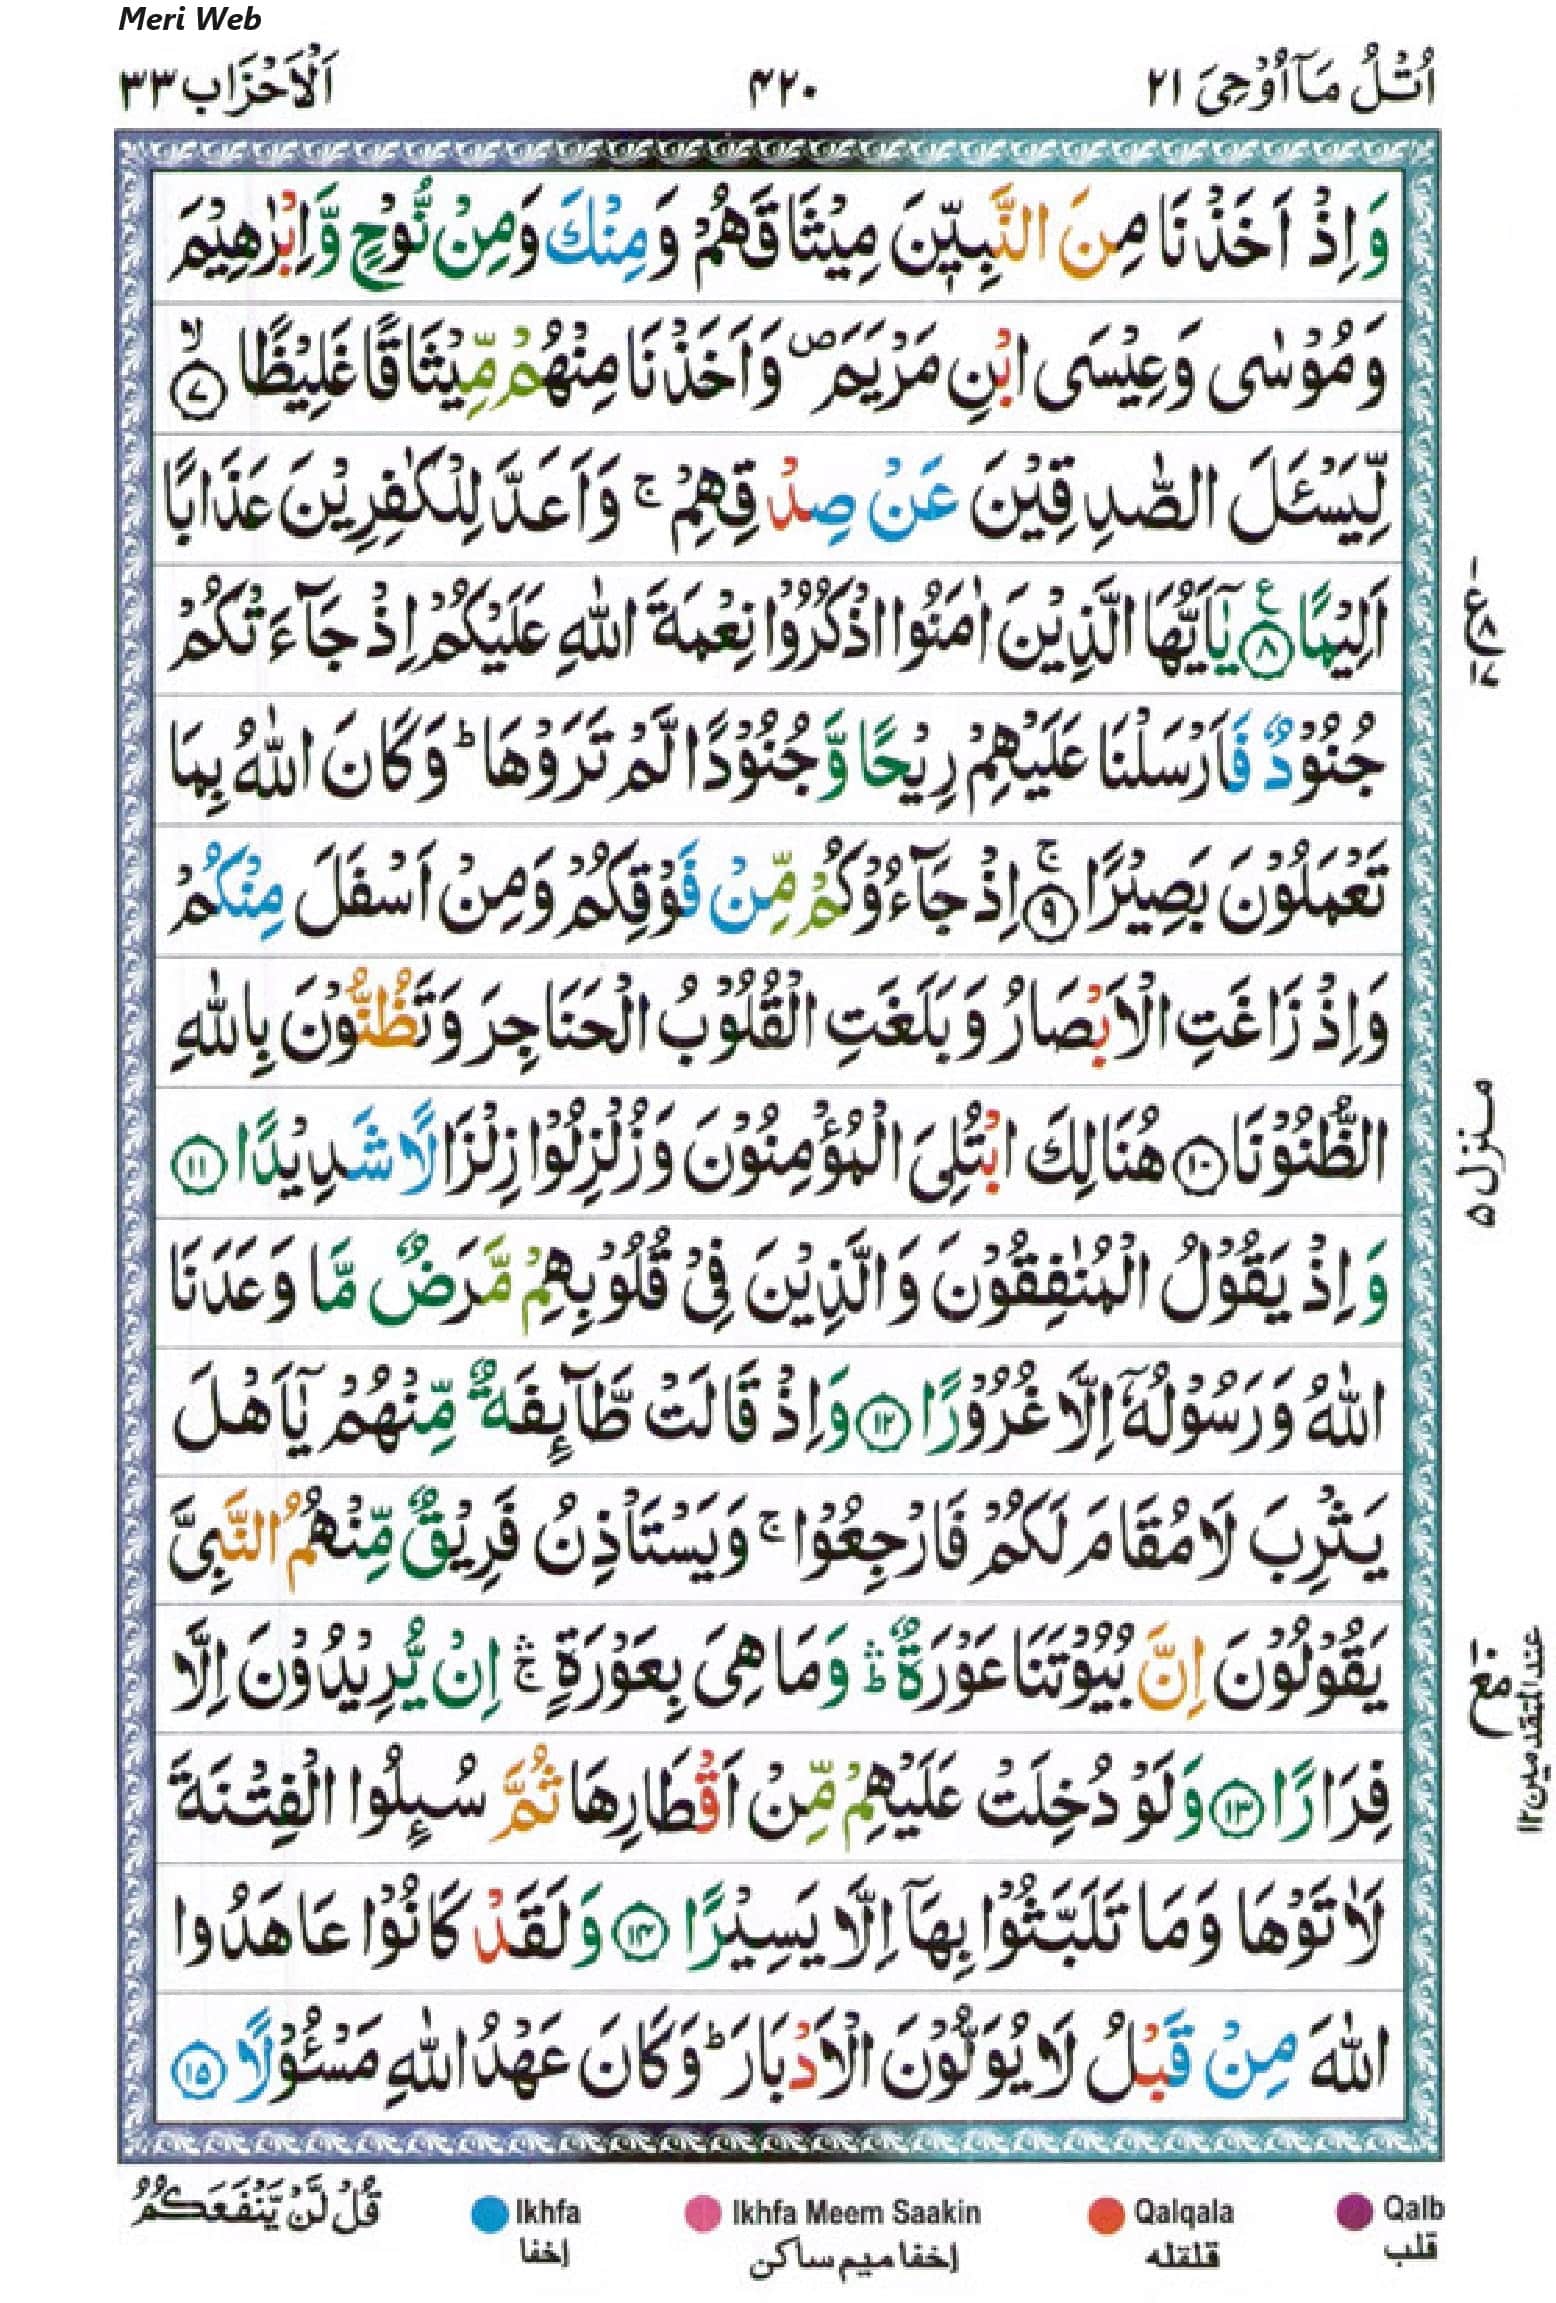 Meri Web
اُتْلُ مَآ اُوْحِیَ ٢١
٤٢٠
اَلْاَحْزَاب ٣٣
وَاِذْ اَخَذْنَا مِنَ النَّبِيّٖنَ مِيْثَاقَهُمْ وَمِنْكَ وَمِنْ نُّوْحٍ وَّاِبْرٰهِيْمَ
وَمُوْسٰى وَعِيْسَى ابْنِ مَرْيَمَ ۖ وَاَخَذْنَا مِنْهُمْ مِّيْثَاقًا غَلِيْظًا ۙ ٧
لِّيَسْـَٔلَ الصّٰدِقِيْنَ عَنْ صِدْقِهِمْ ۚ وَاَعَدَّ لِلْكٰفِرِيْنَ عَذَابًا
اَلِيْمًا ٨ ع يٰٓاَيُّهَا الَّذِيْنَ اٰمَنُوا اذْكُرُوْا نِعْمَةَ اللّٰهِ عَلَيْكُمْ اِذْ جَآءَتْكُمْ
جُنُوْدٌ فَاَرْسَلْنَا عَلَيْهِمْ رِيْحًا وَّجُنُوْدًا لَّمْ تَرَوْهَا ؕ وَكَانَ اللّٰهُ بِمَا
تَعْمَلُوْنَ بَصِيْرًا ۚ ٩ اِذْ جَآءُوْكُمْ مِّنْ فَوْقِكُمْ وَمِنْ اَسْفَلَ مِنْكُمْ
وَاِذْ زَاغَتِ الْاَبْصَارُ وَبَلَغَتِ الْقُلُوْبُ الْحَنَاجِرَ وَتَظُنُّوْنَ بِاللّٰهِ
الظُّنُوْنَا ١٠ هُنَالِكَ ابْتُلِيَ الْمُؤْمِنُوْنَ وَزُلْزِلُوْا زِلْزَالًا شَدِيْدًا ١١
وَاِذْ يَقُوْلُ الْمُنٰفِقُوْنَ وَالَّذِيْنَ فِيْ قُلُوْبِهِمْ مَّرَضٌ مَّا وَعَدَنَا
اللّٰهُ وَرَسُوْلُهٗٓ اِلَّا غُرُوْرًا ١٢ وَاِذْ قَالَتْ طَّآىِٕفَةٌ مِّنْهُمْ يٰٓاَهْلَ
يَثْرِبَ لَا مُقَامَ لَكُمْ فَارْجِعُوْا ۚ وَيَسْتَاْذِنُ فَرِيْقٌ مِّنْهُمُ النَّبِيَّ
يَقُوْلُوْنَ اِنَّ بُيُوْتَنَا عَوْرَةٌ ۛؕ وَمَا هِيَ بِعَوْرَةٍ ۛۚ اِنْ يُّرِيْدُوْنَ اِلَّا
فِرَارًا ١٣ وَلَوْ دُخِلَتْ عَلَيْهِمْ مِّنْ اَقْطَارِهَا ثُمَّ سُىِٕلُوا الْفِتْنَةَ
لَاٰتَوْهَا وَمَا تَلَبَّثُوْا بِهَآ اِلَّا يَسِيْرًا ١٤ وَلَقَدْ كَانُوْا عَاهَدُوا
اللّٰهَ مِنْ قَبْلُ لَا يُوَلُّوْنَ الْاَدْبَارَ ؕ وَكَانَ عَهْدُ اللّٰهِ مَسْـُٔوْلًا ١٥
ع ٨
منزل ٥
مع
عند المتقدمين ١٢
قُلْ لَّنْ يَّنْفَعَكُمُ
Ikhfa
Ikhfa Meem Saakin
Qalqala
Qalb
إخفا
إخفا ميم ساكن
قلقله
قلب